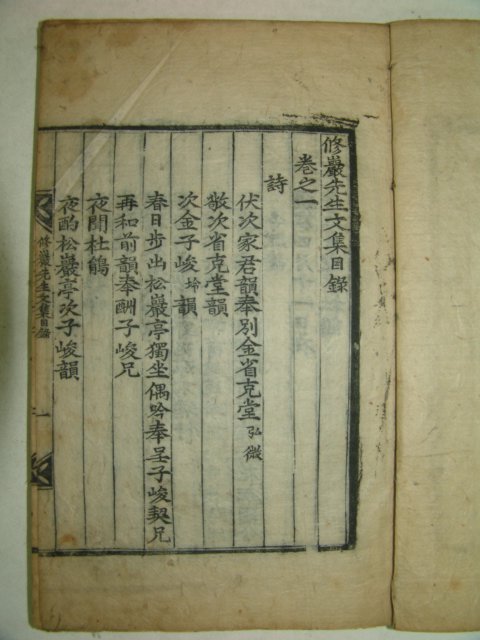 修巖先生文集目錄
卷之一
詩
伏次家君韻奉別金省克堂弘微
敬次省克堂韻
次金子峻埁韻
春日步出松巖亭獨坐偶吟奉呈子峻契兄
再和前韻奉酬子峻兄
夜聞杜鵑
夜酌松巖亭次子峻韻
修巖先生文集目錄
一